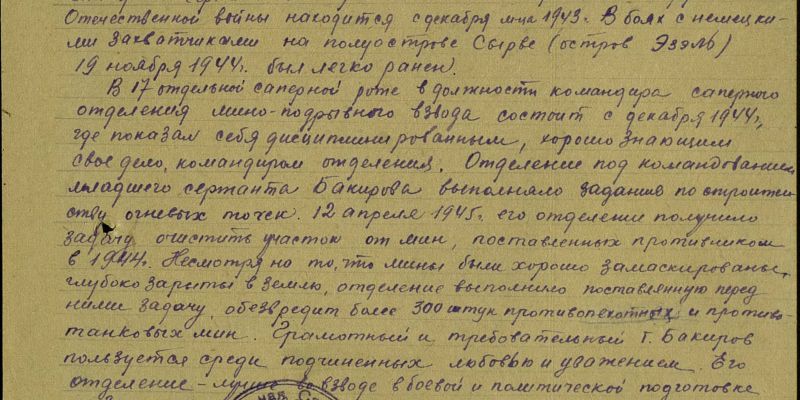 Отечественной войны находится с декабря м-ца 1943 г. В боях с немецки-
ми захватчиками на полуострове Сырве (остров Эзэль)
19 ноября 1944 г. был легко ранен.
В 17 отдельной саперной роте в должности командира саперного
отделения мино-подрывного взвода состоит с декабря 1944 г.,
где показал себя дисциплинированным, хорошо знающим
свое дело, командиром отделения. Отделение под командованием
младшего сержанта Бакирова выполняло задание по строитель
ству огневых точек. 12 апреля 1945 г. его отделение получило
задачу очистить участок от мин, поставленных противником
в 1944 г. Несмотря на то, что мины были хорошо замаскированы,
глубоко зарыты в землю, отделение выполнило поставленную перед
ними задачу, обезвредит более 300 штук противопехотных и противо-
танковых мин. Грамотный и требовательный т. Бакиров
пользуется среди подчиненных любовью и уважением. Его
отделение – лучше во взводе в боевой и политической подготовке